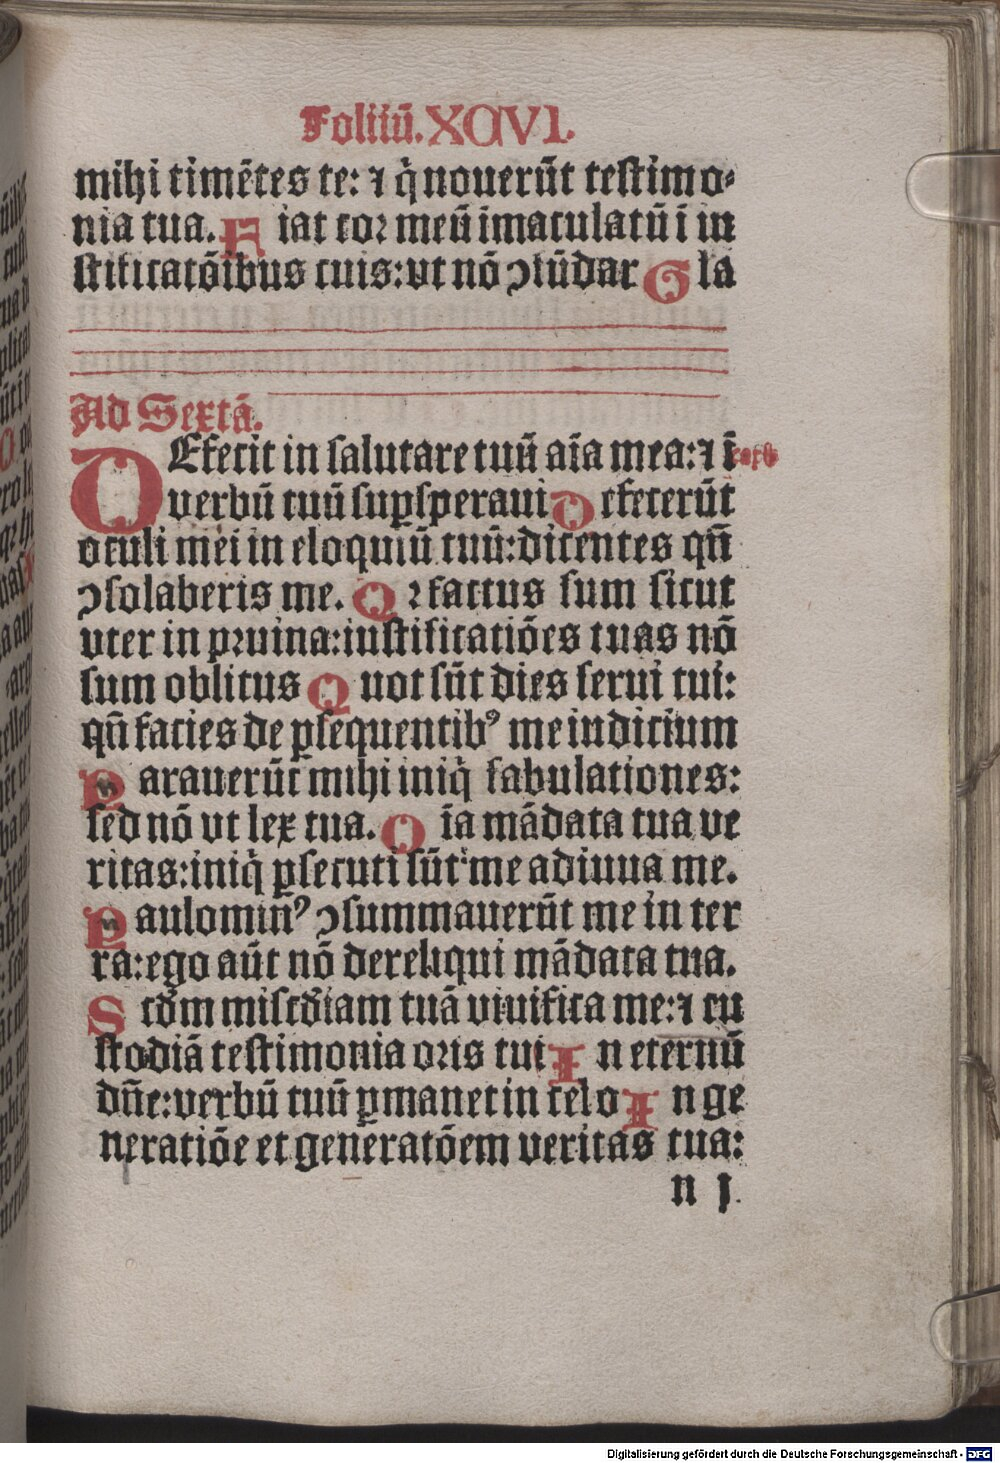 Foliū.XCVI.
mihi timētes te: ⁊ q̇ nouerūt testimo⸗
nia tua. Fiat cor meū īmaculatū ī iu
stificatōibus tuis:vt nō ↄfūdar Gla
Ad Sextā.
DEfecit in salutare tuū aīa mea:⁊ ī
verbū tuū suꝑsperaui Defecerūt
oculi mei in eloquiū tuū:dicentes qn̄
ↄsolaberis me. Qꝛ factus sum sicut
vter in pꝛuina:iustificatiōes tuas nō
sum oblitus Quot sūt dies serui tui:
qn̄ facies de ꝑsequentibꝰ me iudicium
Narauerūt mihi iniq̇ fabulationes:
sed nō vt lex tua. Oīa mādata tua ve
ritas:iniq̇ ꝑsecuti sūt me adiuua me.
Paulomin̄ꝰ ↄsummauerūt me in ter
ra:ego aūt nō dereliqui mādata tua.
Scd̄m miscd̄iam tuā viuifica me:⁊ cu
stodiā testimonia oꝛis tui In eternū
dn̄e:verbū tuū ꝑmanet in celo In ge
neratiōe et generatōem veritas tua:
n j
Digitalisierung gefördert durch die Deutsche Forschungsgemeinschaft - DFG